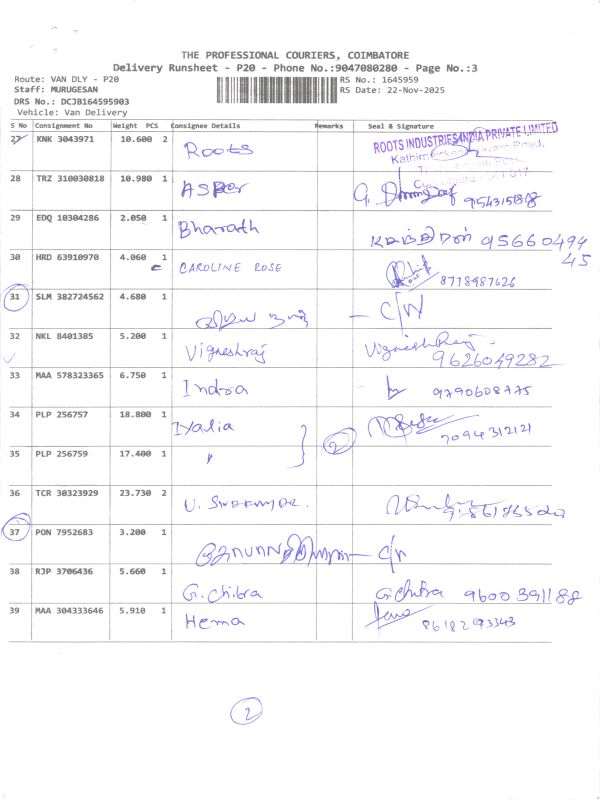 THE PROFESSIONAL COURIERS, COIMBATORE
Delivery Runsheet - P20 - Phone No.:9047080280 - Page No.:3
Route: VAN DLY - P20 RS No.: 1645959
Staff: MURUGESAN RS Date: 22-Nov-2025
DRS No.: DCJB164595903
Vehicle: Van Delivery
S No Consignment No Weight PCS Consignee Details Remarks Seal & Signature
27 KNK 3043971 10.600 2 Roots ROOTS INDUSTRIES INDIA PRIVATE LIMITED
28 TRZ 310030818 10.980 1
29 EDQ 10304286 2.050 1 Bharath 95660494
45
30 HRD 63910970 4.060 1 CAROLINE ROSE 8778987626
31 SLM 382724562 4.680 1 C/N
32 NKL 8401385 5.200 1 Vigneshraj Vigneshraj
9626049282
33 MAA 578323365 6.750 1 Indra 9790608775
34 PLP 256757 18.800 1 Iyalia 2 7094312121
35 PLP 256759 17.400 1 "
36 TCR 30323929 23.730 2
37 PON 7952683 3.200 1 C/N
38 RJP 3706436 5.660 1 G. Chitra G. Chitra 9600391188
39 MAA 304333646 5.910 1 Hema 8618293343
2